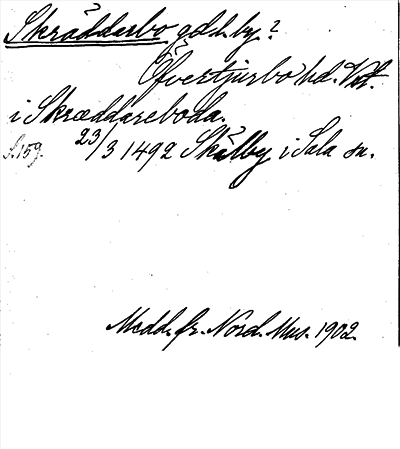 Skrädderbo gdl. by?
Öfvertjurbo hd. Vstm.
i Skræddareboda.
S. 159. 23/3 1492 Skålby i Sala sn.
Medd. fr. Nord. Mus. 1902.